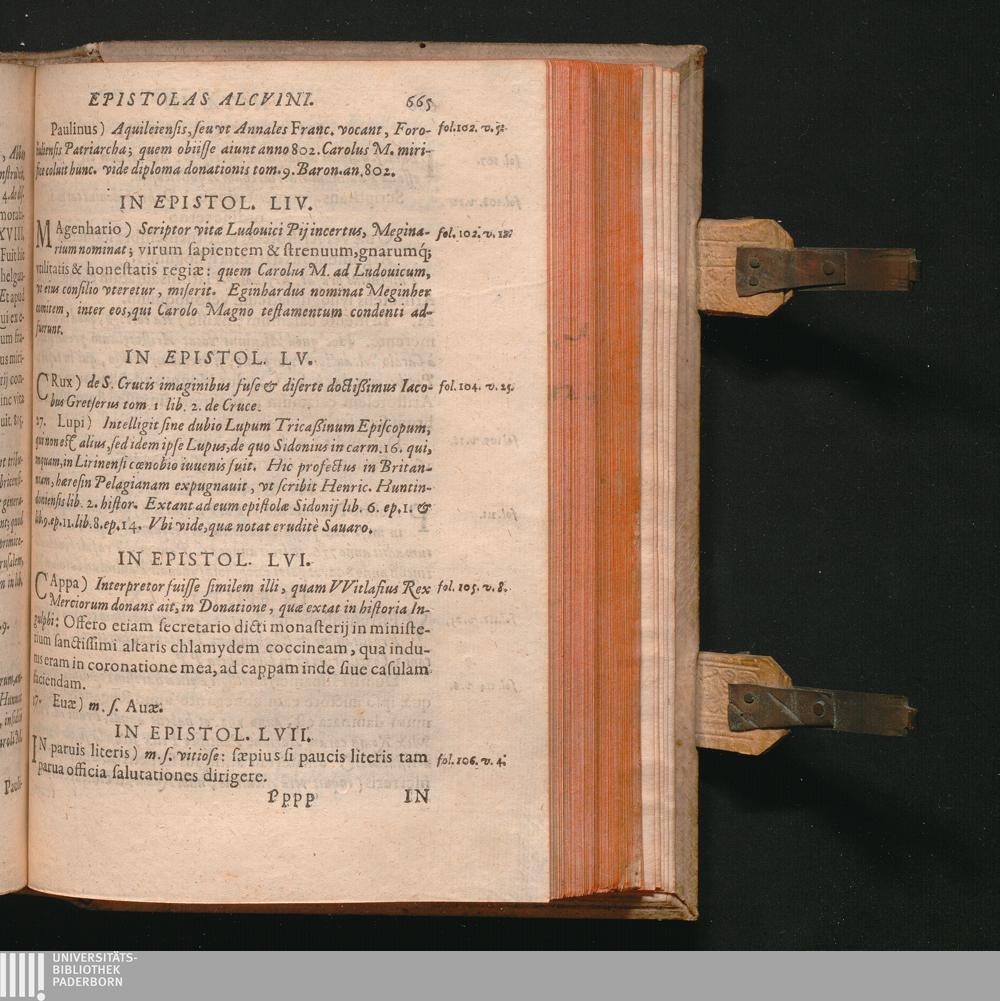 EPISTOLAS ALCVINI. 665
Paulinus) Aquileiensis, seu vt Annales Franc. vocant, Foro- fol.102. v.
iuliensis Patriarcha; quem obiisse aiunt anno 802. Carolus M. miri-
fice coluit hunc. vide diploma donationis tom. 9. Baron. an. 802.
IN EPISTOL. LIV.
MAgenhario) Scriptor vitæ Ludouici Pij incertus, Megina- fol.102. v.
rium nominat; virum sapientem & strenuum, gnarumq́;
vtilitatis & honestatis regiæ: quem Carolus M. ad Ludouicum,
vt eius consilio vteretur, miserit. Eginhardus nominat Meginher
comitem, inter eos, qui Carolo Magno testamentum condenti ad-
fuerunt.
IN EPISTOL. LV.
CRux) de S. Crucis imaginibus fuse & diserte doctißimus Iaco- fol.104. v.25.
bus Gretserus tom 1 lib. 2. de Cruce.
27. Lupi) Intelligit sine dubio Lupum Tricaßinum Episcopum,
qui non est alius, sed idem ipse Lupus, de quo Sidonius in carm. 16. qui,
inquam, in Lirinensi cœnobio iuuenis fuit. Hic profectus in Britan-
niam, hæresin Pelagianam expugnauit, vt scribit Henric. Huntin-
doniensis lib. 2. histor. Extant ad eum epistolæ Sidonij lib. 6. ep. 1. &
lib. 9. ep. 11. lib. 8. ep. 14. Vbi vide, quæ notat eruditè Sauaro.
IN EPISTOL. LVI.
CAppa) Interpretor fuisse similem illi, quam VVitlafius Rex fol.105. v.8.
Merciorum donans ait, in Donatione, quæ extat in historia In-
gulphi: Offero etiam secretario dicti monasterij in ministe-
rium sanctissimi altaris chlamydem coccineam, qua indu-
tus eram in coronatione mea, ad cappam inde siue casulam
faciendam.
17. Euæ) m. s. Auæ.
IN EPISTOL. LVII.
IN paruis literis) m. s. vitiose: sæpius si paucis literis tam fol.106. v.4.
parua officia salutationes dirigere.
Pppp IN
UNIVERSITÄTS-
BIBLIOTHEK
PADERBORN